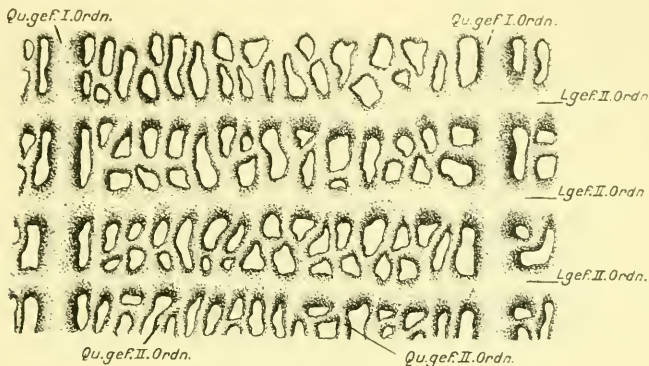 Qu.gef.I.Ordn.
Qu.gef.I.Ordn.
Lgef.II.Ordn
Lgef.II.Ordn
Lgef.II.Ordn.
Qu.gef.II.Ordn.
Qu.gef.II.Ordn.